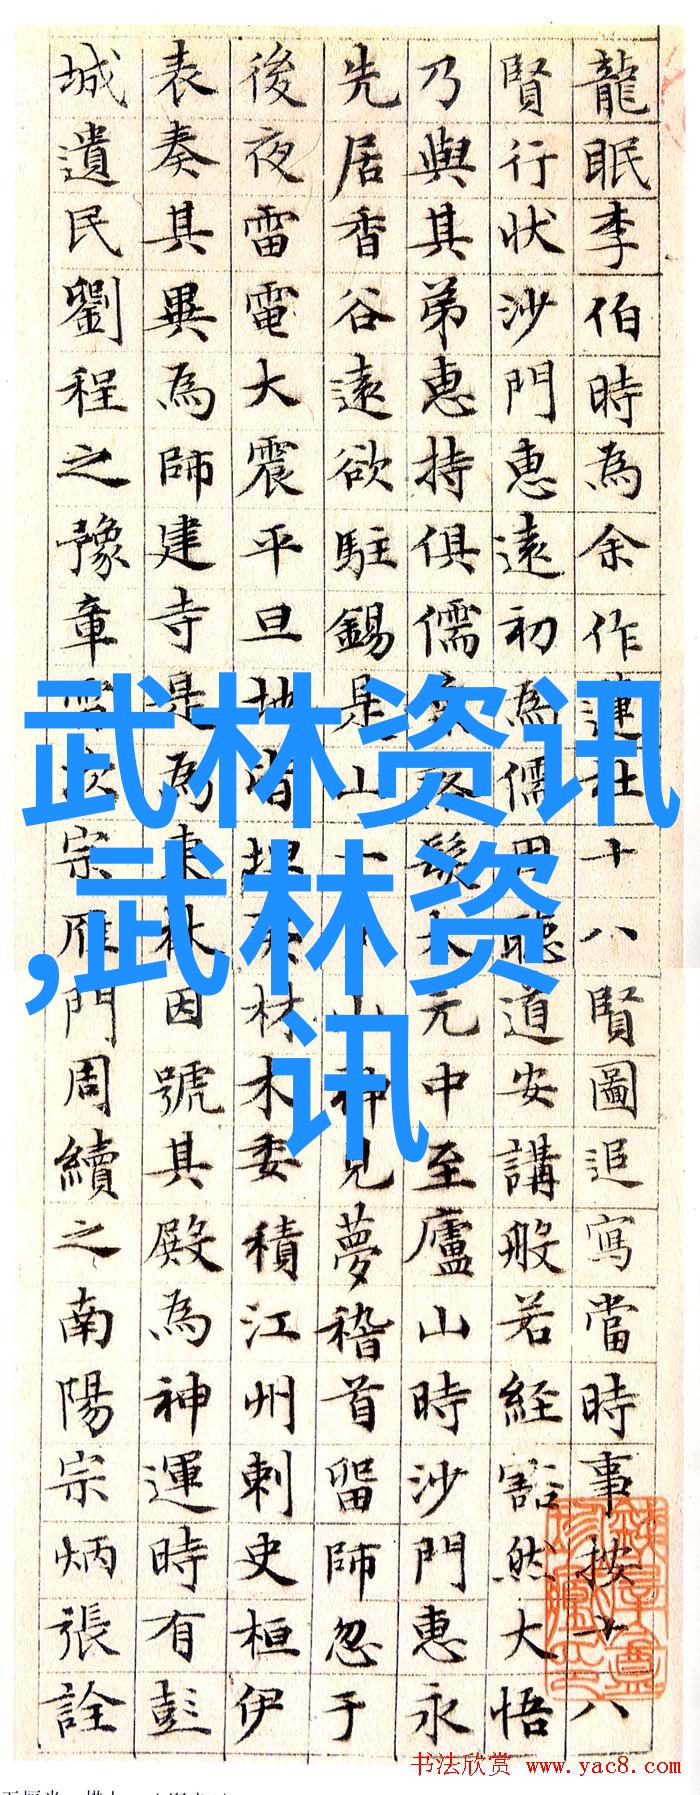 龍眠李伯時為余作蓮社十八賢圖追寫當時事按十八
賢行狀沙門惠遠初為儒用聽道安講般若経豁然大悟
乃與其弟惠持俱儒髮太元中至廬山時沙門惠永
先居香谷遠欲駐錫是山一山神見夢稽首留師忽于
後夜雷電大震平旦地皆材木委積江州刺史桓伊
表奏其異為師建寺是為東林因號其殿為神運時有彭
城遺民劉程之豫章雷次宗雁門周續之南陽宗炳張詮
武林资讯
,武林资
讯
书法欣赏 www.yac8.com